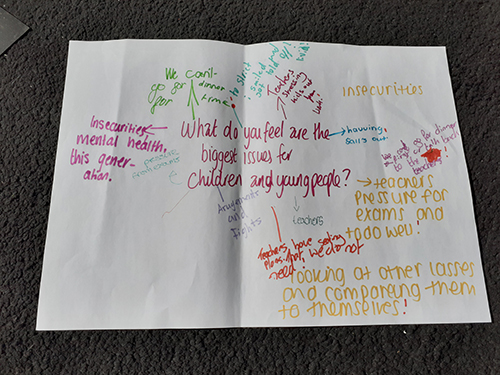 We can't
go for dinner
for time
to strict
smiled and
got told
off!
Teachers
stressing
kids out
Insecurities
Insecurities
mental health,
this gener-
ation.
What do you feel are the
biggest issues for
children and young people?
pressure
Arguments
and
fights
teachers
→ teachers
pressure for
exams and
to do well!
Teachers have seating
we do not
need
looking at other lasses
and comparing them
to themselves!